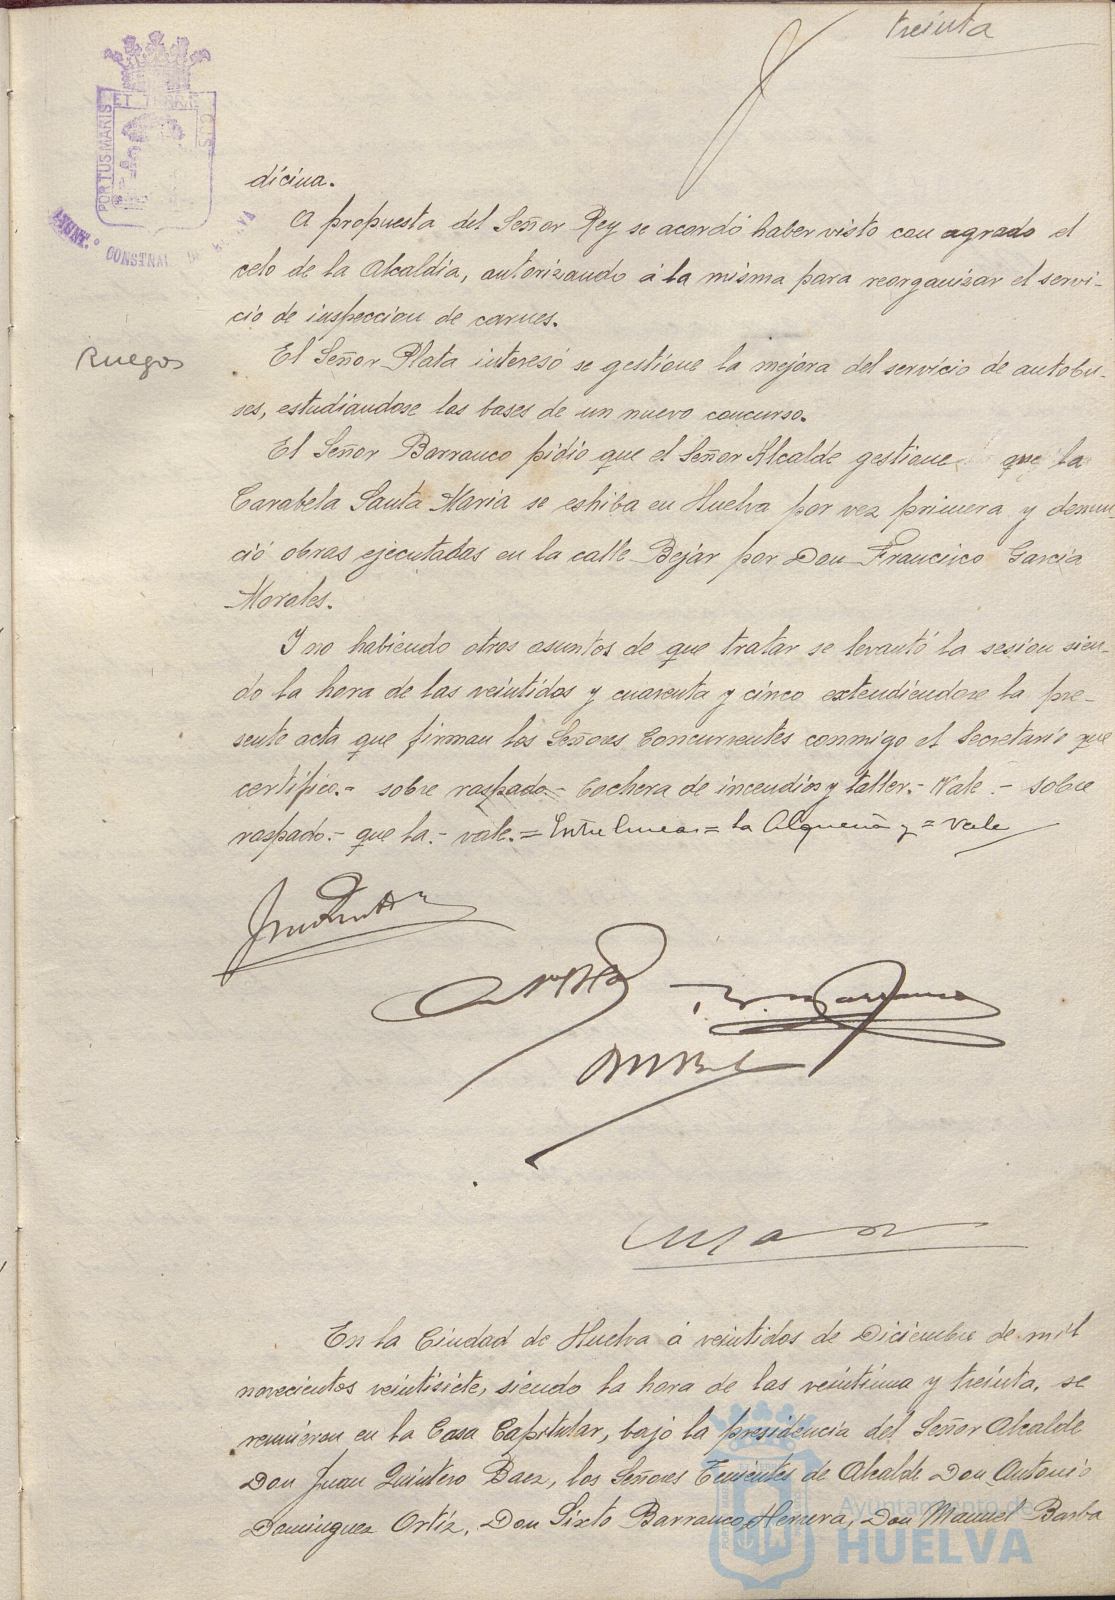 treinta
PORTUS MARIS ET TERRÆ CUS
dicina.
A propuesta del Señor Rey se acordó haber visto con agrado el
celo de la Alcaldia, autorizando á la misma para reorganizar el servi-
cio de inspeccion de carnes.
Ruegos
El Señor Plata interesó se gestione la mejora del servicio de autobu-
ses, estudiandose las bases de un nuevo concurso.
El Señor Barranco pidió que el Señor Alcalde gestione que la
Carabela Santa Maria se eshiba en Huelva por vez primera y denun
ció obras ejecutadas en la calle Bejar por Don Francisco Garcia
Morales.
Y no habiendo otros asuntos de que tratar se levantó la sesion sien-
do la hora de las veintidos y cuarenta y cinco extendiendose la pre-
sente acta que firman los Señores Concurrentes conmigo el Secretario que
certifico.- sobre raspado- Cochera de incendios y taller.- Vale.- sobre
raspado.- que la.- vale.= Entre lineas = la Alqueria y = Vale
En la Ciudad de Huelva á veintidos de Diciembre de mil
novecientos veintisiete, siendo la hora de las veintiuna y treinta, se
reunieron en la Casa Capitular, bajo la presidencia del Señor Alcalde
Don Juan Quintero Baez, los Señores Tenientes de Alcalde Don Antonio
Dominguez Ortiz, Don Sixto Barranco Herrera, Don Manuel Barba
Ayuntamiento de
HUELVA